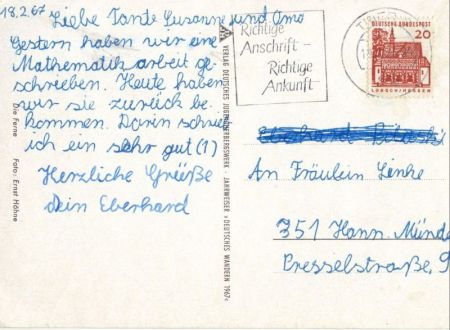 18.2.67
Liebe Tante Susanne und Omo
Gestern haben wir eine
Mathematik arbeit ge-
schrieben. Heute haben
wir sie zurück be-
kommen. Darin schrieb
ich ein sehr gut (1)
Herzliche Grüße
Dein Eberhard
Die Ferne
Foto: Ernst Höhne
VERLAG DEUTSCHES JUGENDHERBERGSWERK - JAHRWEISER »DEUTSCHES WANDERN 1967«
Richtige
Anschrift -
Richtige
Ankunft
DEUTSCHE BUNDESPOST
20
LORSCH/HESSEN
An Fräulein Linke
351 Hann. Münde
Presselstraße 9